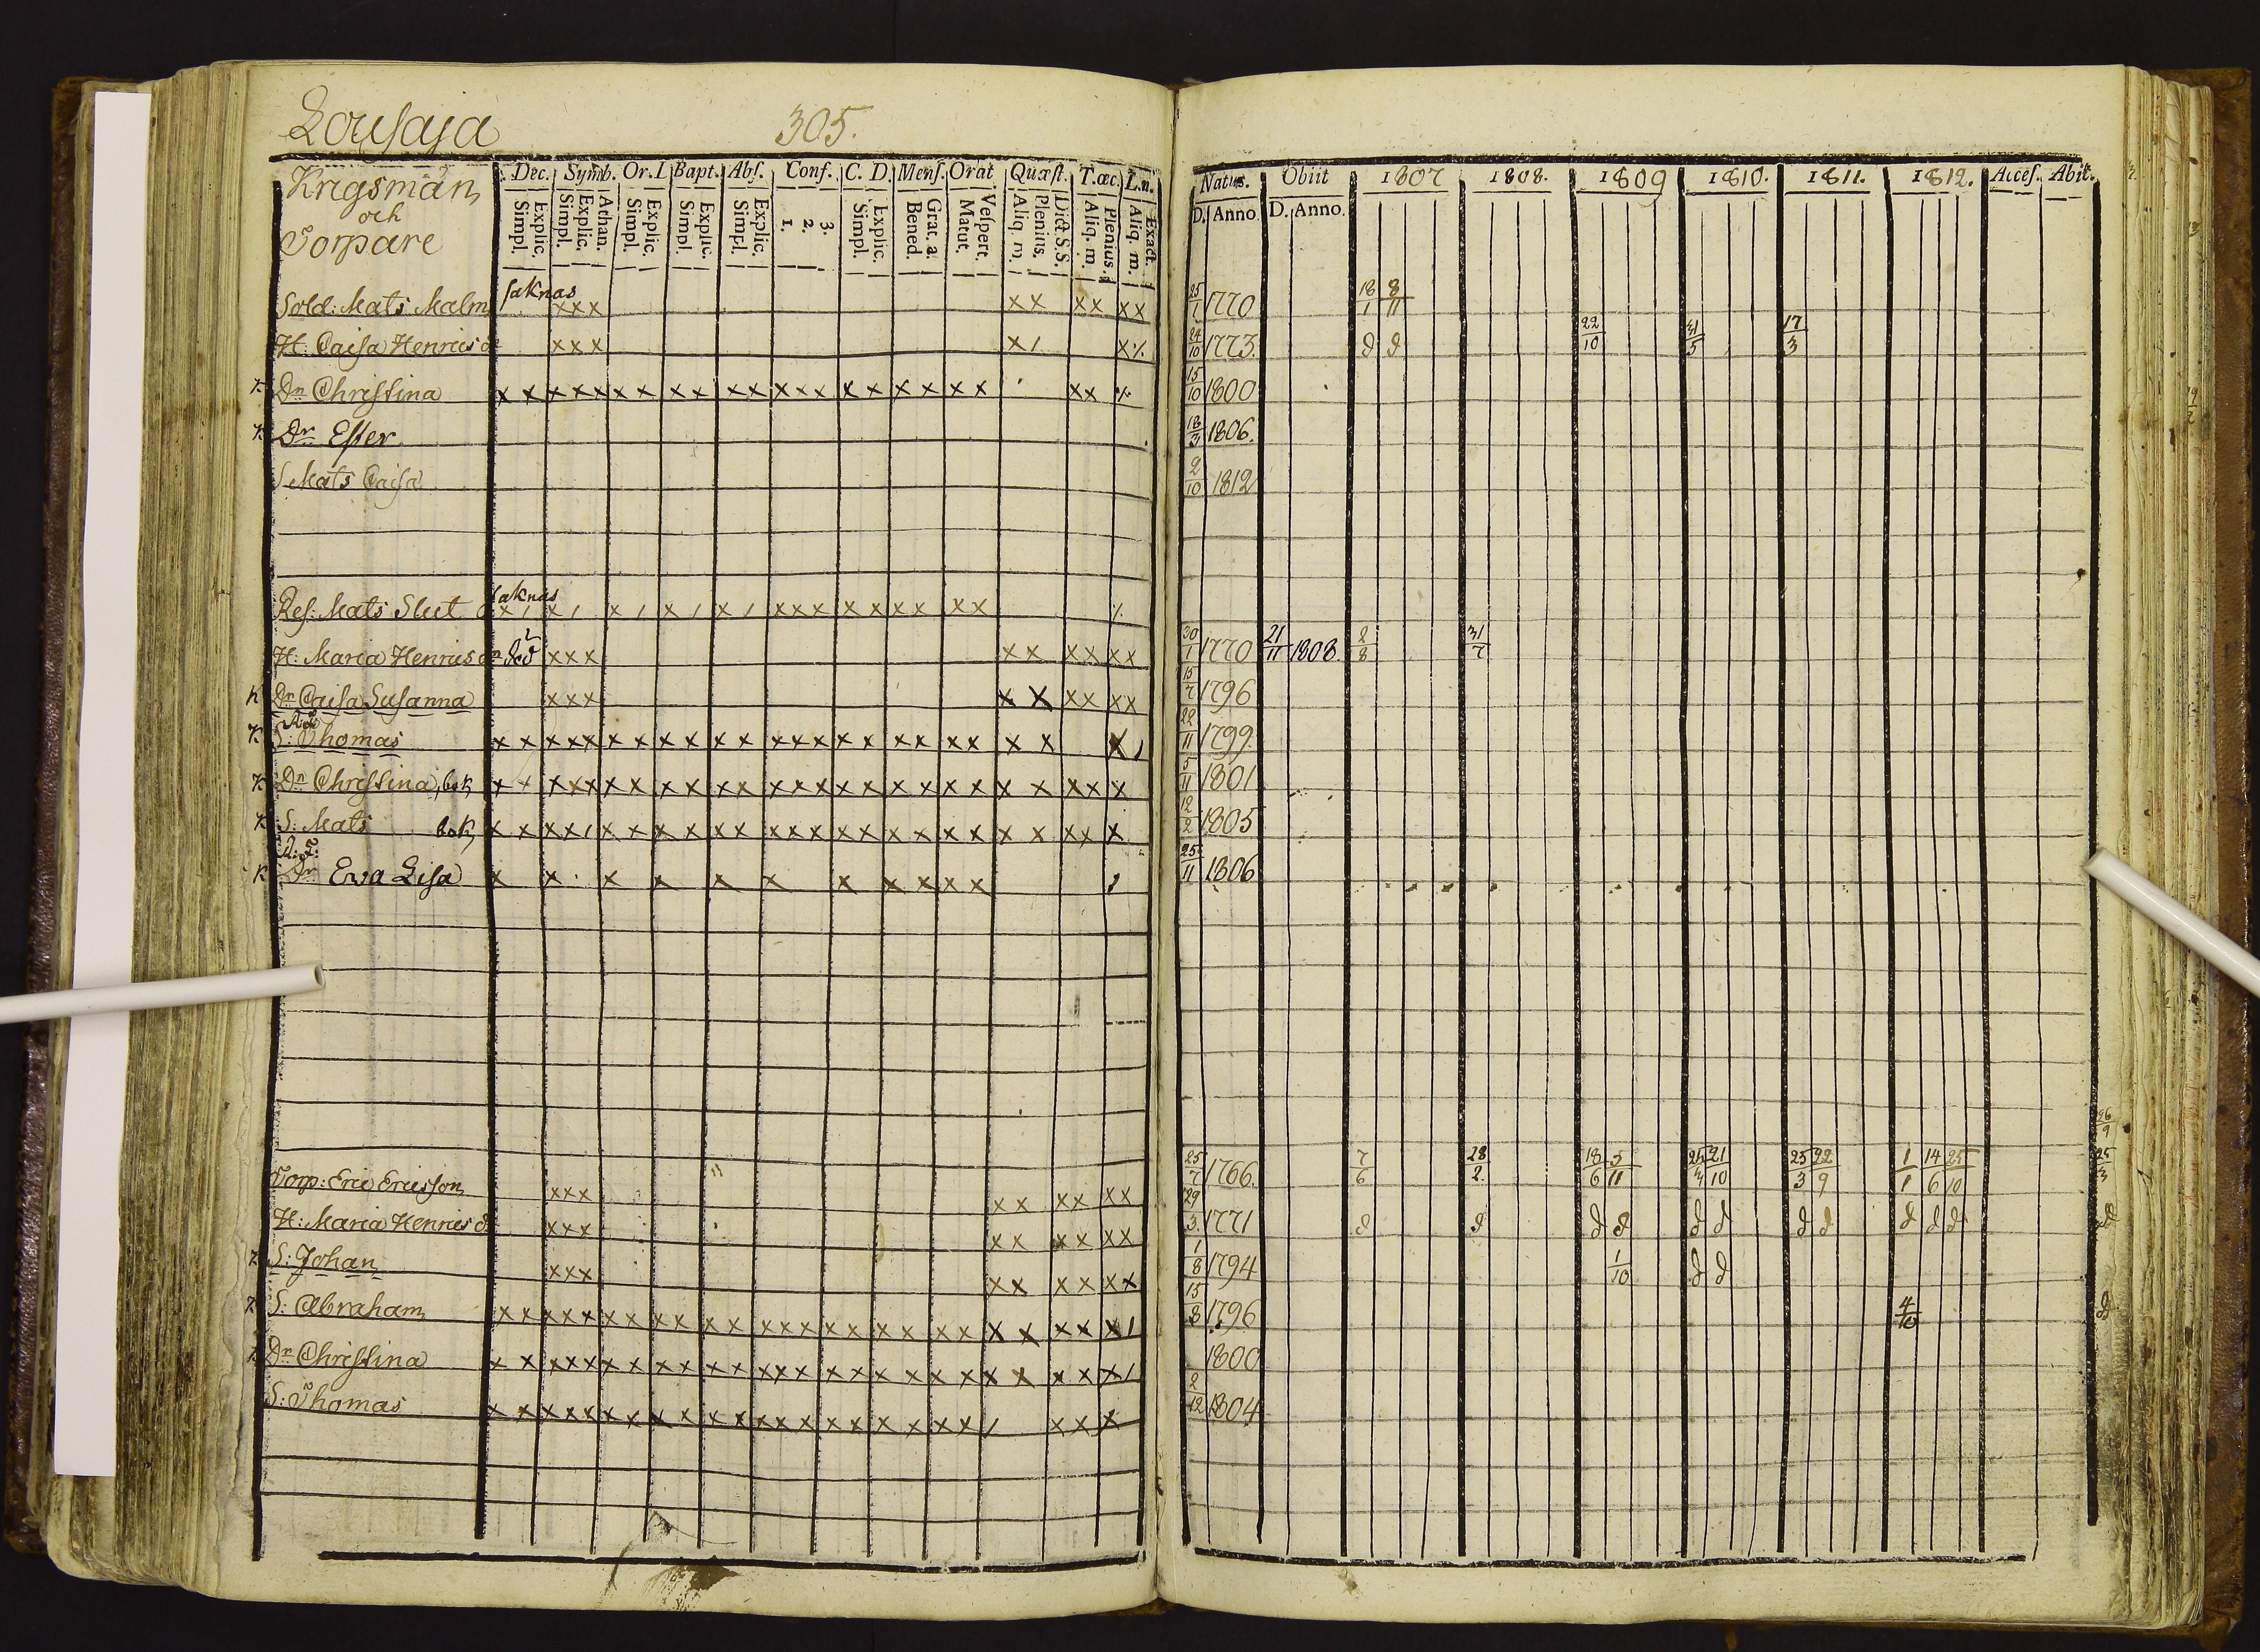 Lousaja 305.
Krigsmän
och
Torpare
Dec. Symb. Or. Bapt. Abs. Conf. C. D. Mens. Orat Quæst. T.œc. L.n.
Explic. Simpl. Athan. Explic. Simpl. Explic. Simpl. Explic. Simpl. Explic. Simpl. 3. 2. 1. Explic. Simpl. Grat. a. Bened. Vespert. Matut. Dict S.S. Plenius. Aliq. m. Plenius. Aliq. m. Exact. Aliq. m.
Natus. Obiit 1807 1808. 1809 1810. 1811. 1812. Acces. Abit.
D. Anno D. Anno.
Sold: Mats Malm saknas xxx xx xx xx 25/1 1770 18/1 8/11
H: Caisa Henricsd xxx x/ x% 24/10 1773. d d 22/10 31/5 17/3
K Dr Christina x x x x x x x x x x x x x x x x x x x x x x x x 15/10 1800
K Dr Ester 18/3 1806.
S Mats Caisa 2/10 1812
Res: Mats Slut saknas x / x / x / x / x / xxx x x x x x x
H: Maria Henricsdr xxx xx xx xx 30/1 1770 21/11 1808. 2/8 31/7
K Dr Caisa Susanna xxx x x xx xx 15/7 1796
K S: Thomas x x xxx x x x x x x xxx x x x x x x x x x / 22/11 1799.
K Dr Christina, bok x x xxx x x x x x x xxx x x x x x x x x x x x 5/11 1801
K S: Mats bok x x x x / x x x x x x xxx x x x x x x x x x x x 12/2 1805
K Dr Eva Lisa x x x x x x x x x x x 25/11 1806
Torp: Eric Ericsson xxx x x x x x x 25/7 1766. 7/6 28/2 18/6 5/11 25/3 21/10 25/3 22/9 1/1 14/6 25/10 25/3
H: Maria Henricsd xxx x x x x x x 29/3 1771 d d d d d d d d d d d
K S: Johan xxx x x x x x x 1/8 1794 1/10 d d
K S: Abraham x x xxx x x x x x x xxx x x x x x x x x x x x / 15/8 1796 4/10 d
K Dr Christina x x xxx x x x x x x xxx x x x x x x x x x x x / 1800
S: Thomas x x xxx x x x x x x xxx x x x x x x / x x x 2/12 1804